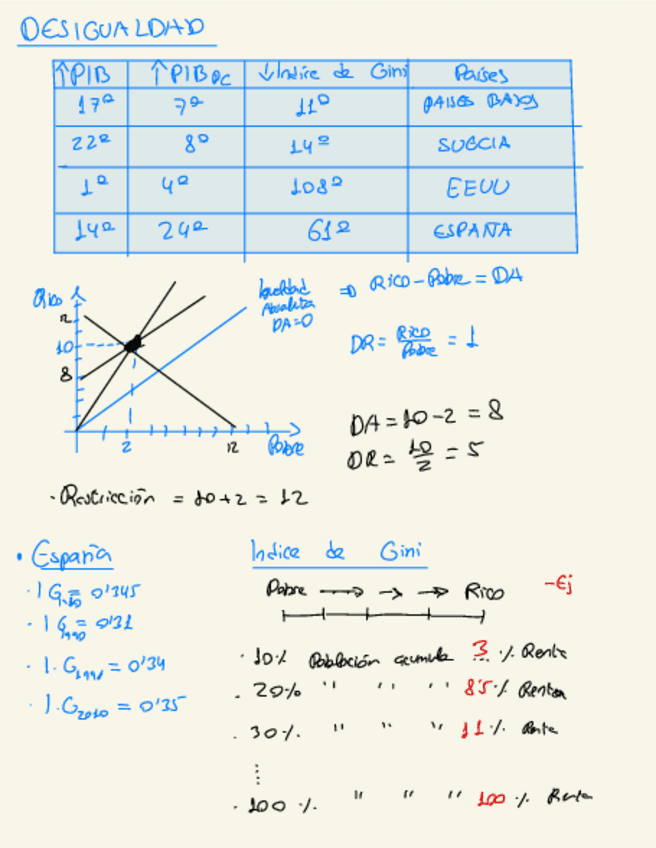 DESIGUALDAD
↑PIB ↑PIB PC ↓Indice de Gini Países
17º 7º 11º PAISES BAJOS
22º 8º 14º SUECIA
1º 4º 108º EEUU
14º 24º 61º ESPAÑA
Rico
12
10
8
2
12
Pobre
Igualdad
Absoluta
DA=0
⇒ Rico - Pobre = DA
DR = Rico/Pobre = 1
DA = 10 - 2 = 8
DR = 10/2 = 5
· Restricción = 10 + 2 = 12
· España
· I G = 0'345
· I G1990 = 0'31
· I. G = 0'34
· I. G2010 = 0'35
Indice de Gini
Pobre → → → Rico
- Ej
· 10% Población acumula 3 % Renta
· 20% " " " 8'5 % Renta
· 30% " " " 11 % Renta
⋮
· 100 % " " " 100 % Renta